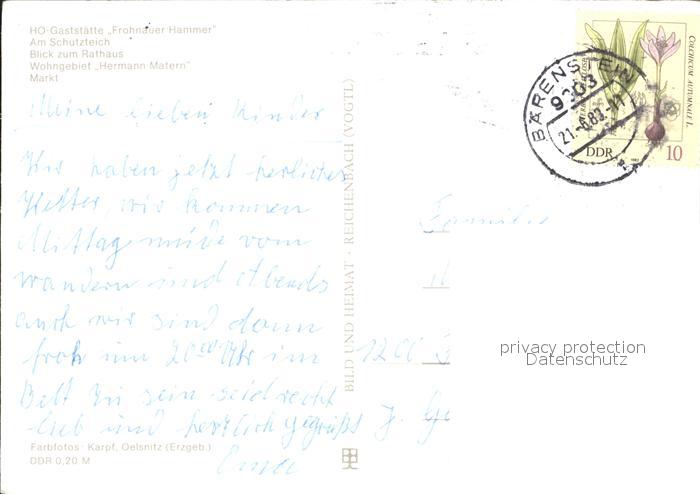 HO-Gaststätte „Frohnauer Hammer"
Am Schutzteich
Blick zum Rathaus
Wohngebiet „Hermann Matern"
Markt
Meine lieben Kinder
Wir haben jetzt herrliches
Wetter, wir kommen
Mittag müde vom
wandern und Abends
auch wir sind dann
froh um 20 00 Uhr im
Bett zu sein seid recht
lieb und herzlich gegrüßt
Farbfotos · Karpf, Oelsnitz (Erzgeb.)
DDR 0,20 M
BILD UND HEIMAT · REICHENBACH (VOGTL)
BÄRENSTEIN
9303
COLCHICUM AUTUMNALE L.
DDR
10
Familie
privacy protection
Datenschutz